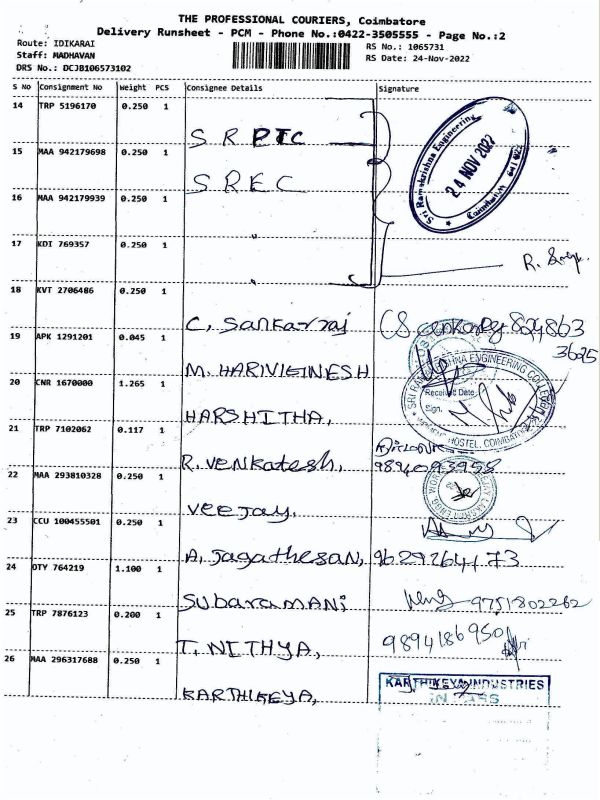 THE PROFESSIONAL COURIERS, Coimbatore
Delivery Runsheet - PCM - Phone No.:0422-3505555 - Page No.:2
Route: IDIKARAI
RS No.: 1065731
Staff: MADHAVAN
RS Date: 24-Nov-2022
DRS No.: DCJB106573102
S No Consignment No Weight PCS Consignee Details Signature
14 TRP 5196170 0.250 1
S R PTC
15 MAA 942179698 0.250 1
S R E C
16 MAA 942179939 0.250 1
"
17 KDI 769357 0.250 1
"
Sri Ramakrishna Engineering
24 NOV 2022
Coimbatore 641 022
R.
18 KVT 2706486 0.250 1
C. Sankarraj
824863
3625
19 APK 1291201 0.045 1
M. HARIVIGINESH
20 CNR 1670000 1.265 1
HARSHITHA,
SRI RAMAKRISHNA ENGINEERING COLLEGE
Received Date
Sign.
HOSTEL, COIMBATORE
21 TRP 7102062 0.117 1
R. Venkatesh,
9894093958
22 MAA 293810328 0.250 1
Veejay,
23 CCU 100455501 0.250 1
A. Jagathesan, 9629264173
24 OTY 764219 1.100 1
SUBARAMANI
9751802262
25 TRP 7876123 0.200 1
T. NITHYA,
9894186950
26 MAA 296317688 0.250 1
KARTHIKEYA,
KARTHIKEYA INDUSTRIES